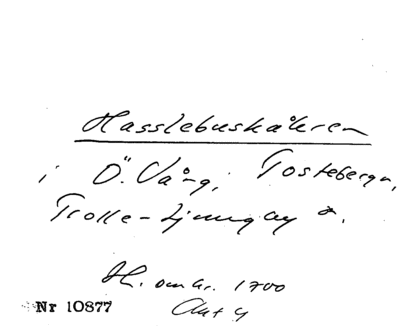 Hasslebuskåkren
i Ö. Vång, Tosteberga,
Trolle-Ljungby s.
H. omkr. 1700
Nr 10877 Akt 4